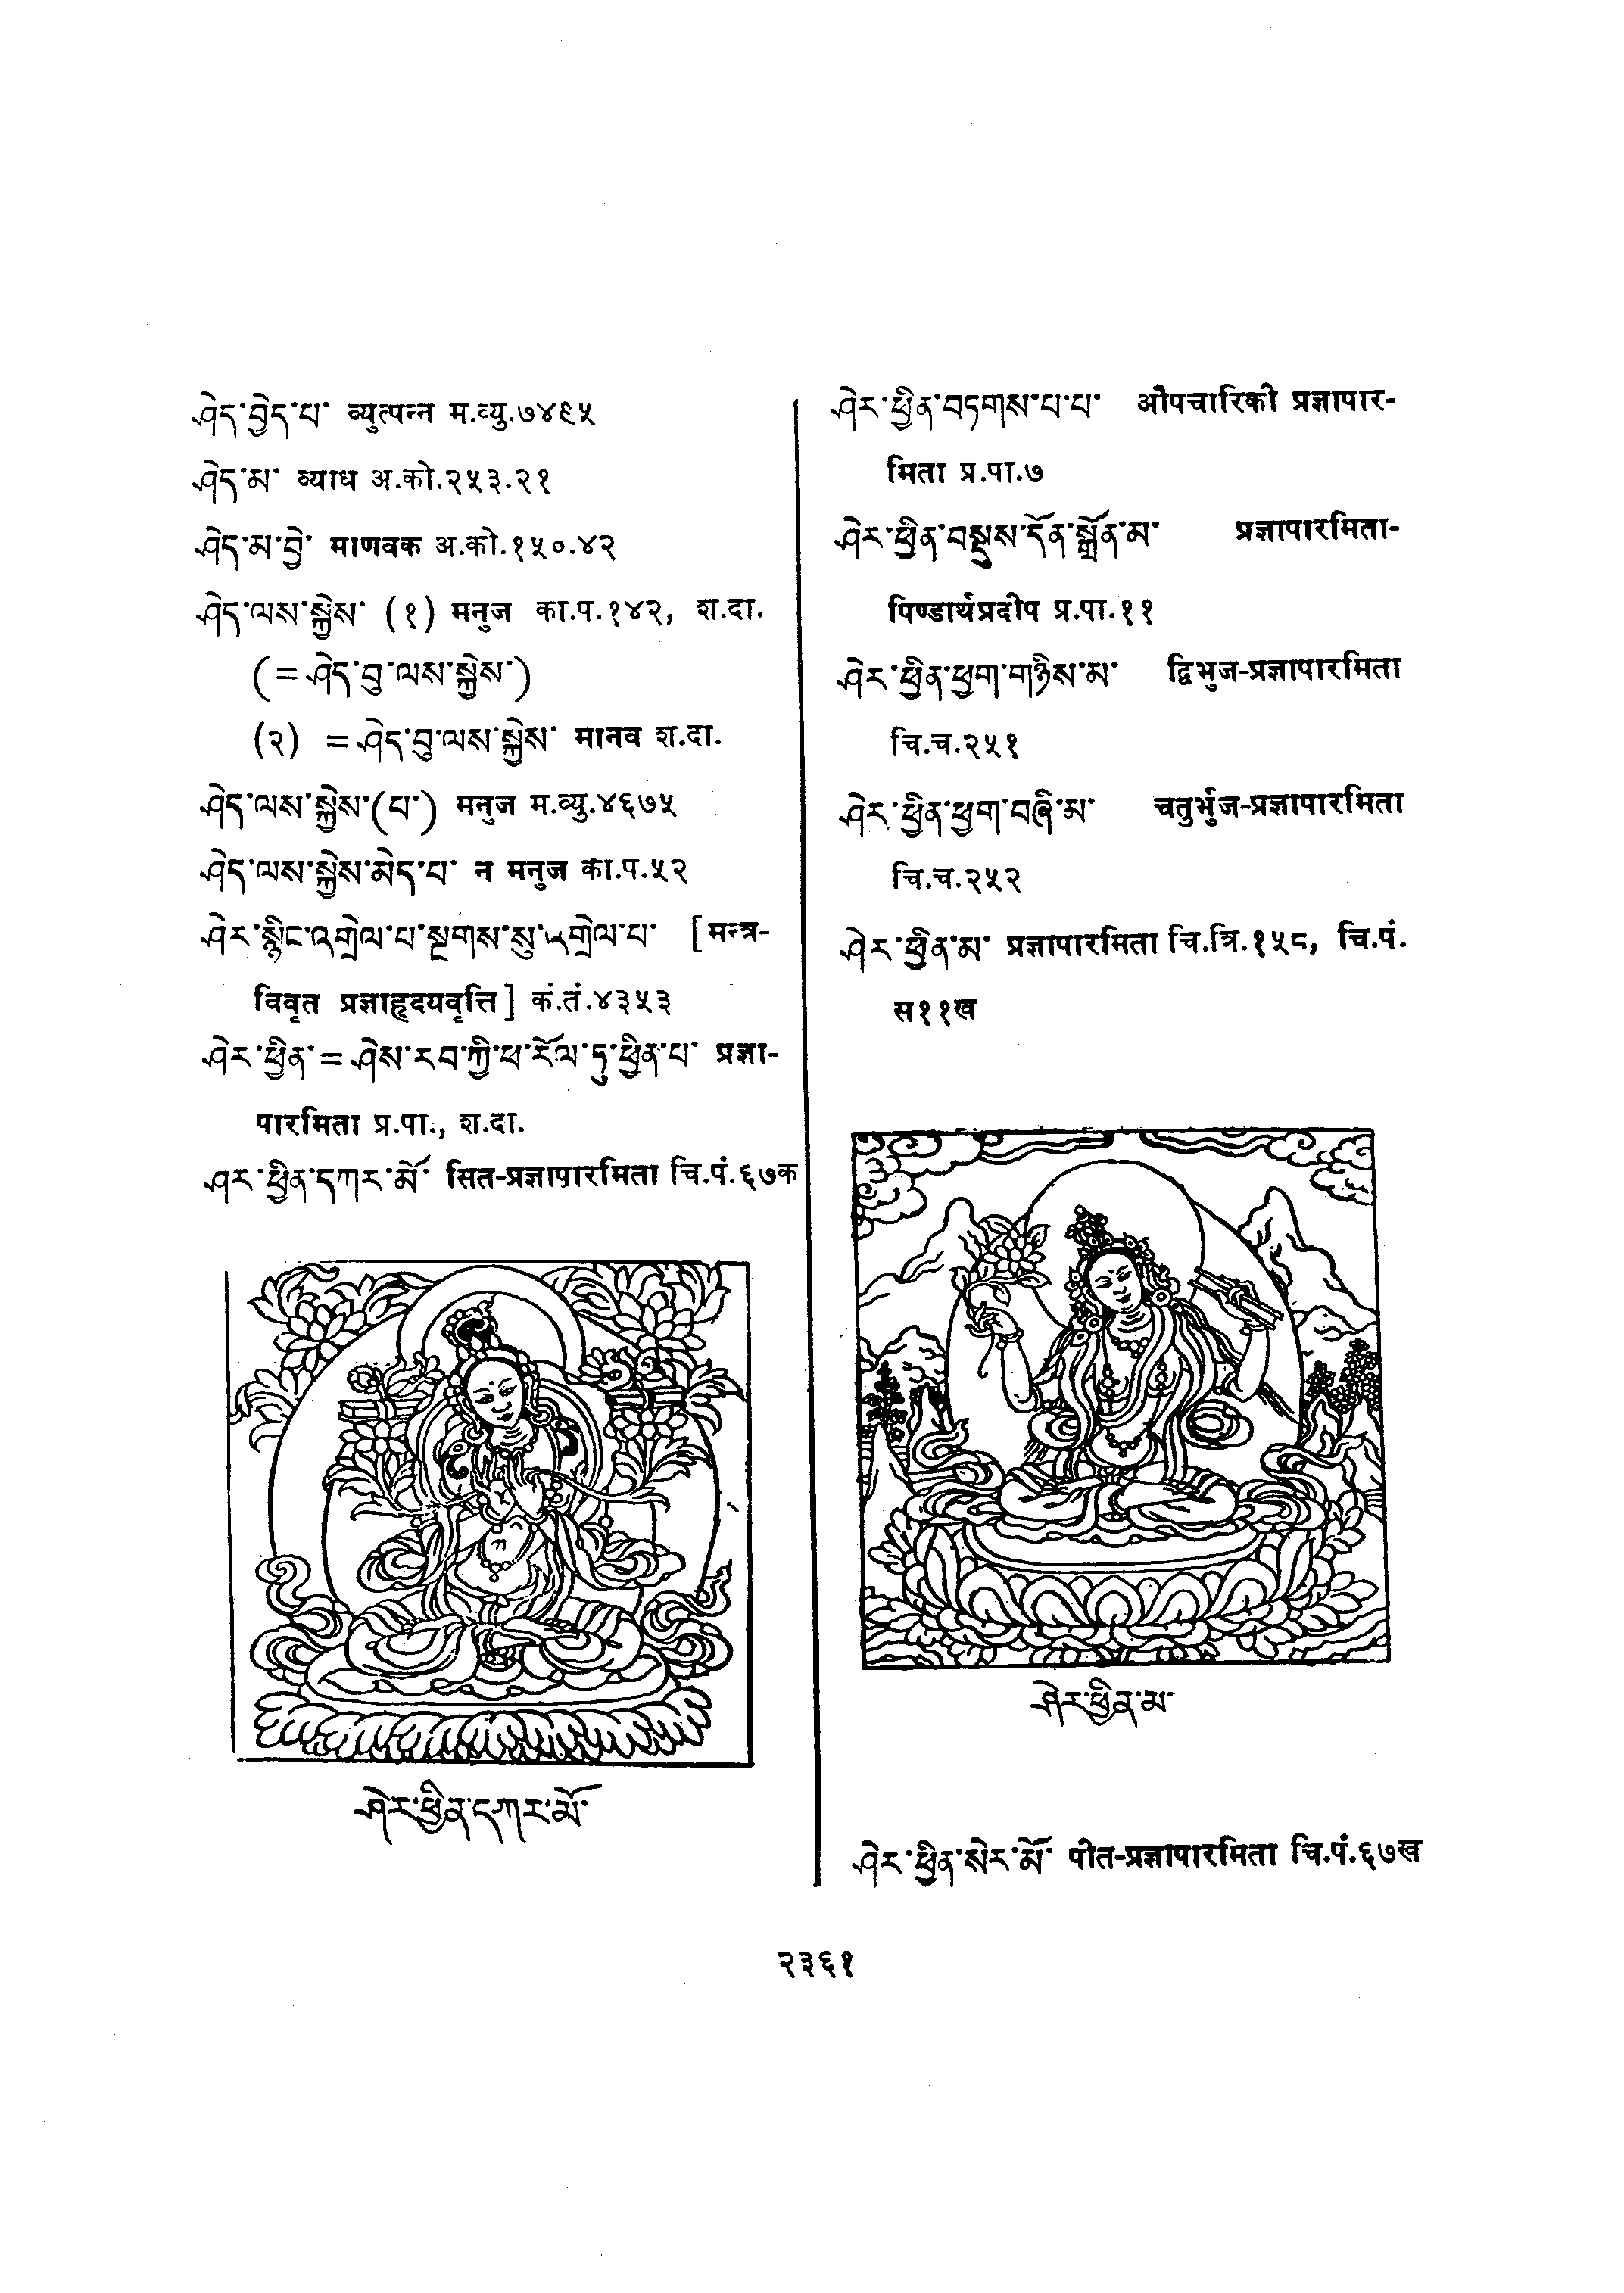 ཤེད་བྱེད་པ་ व्युत्पन्न म.व्यु.७४९५
ཤེད་མ་ व्याध अ.को.२५३.२१
ཤེད་མ་བྱེ་ माणवक अ.को.१५०.४२
ཤེད་ལས་སྐྱེས་ (१) मनुज का.प.१४२, श.दा.
(=ཤེད་བུ་ལས་སྐྱེས་)
(२) =ཤེད་བུ་ལས་སྐྱེས་ मानव श.दा.
ཤེད་ལས་སྐྱེས་(པ་) मनुज म.व्यु.४६७५
ཤེད་ལས་སྐྱེས་མེད་པ་ न मनुज का.प.५२
ཤེར་སྙིང་འགྲེལ་པ་སྔགས་སུ་འགྲེལ་པ་ [मन्त्र-
विवृत प्रज्ञाहृदयवृत्ति] कं.तं.४३५३
ཤེར་ཕྱིན་=ཤེས་རབ་ཀྱི་ཕ་རོལ་ཏུ་ཕྱིན་པ་ प्रज्ञा-
पारमिता प्र.पा., श.दा.
ཤར་ཕྱིན་དཀར་མོ་ सित-प्रज्ञापारमिता चि.पं.६७क
ཤེར་ཕྱིན་དཀར་མོ་
ཤེར་ཕྱིན་བཏགས་པ་པ་ औपचारिकी प्रज्ञापार-
मिता प्र.पा.७
ཤེར་ཕྱིན་བསྡུས་དོན་སྒྲོན་མ་ प्रज्ञापारमिता-
पिण्डार्थप्रदीप प्र.पा.११
ཤེར་ཕྱིན་ཕྱག་གཉིས་མ་ द्विभुज-प्रज्ञापारमिता
चि.च.२५१
ཤེར་ཕྱིན་ཕྱག་བཞི་མ་ चतुर्भुज-प्रज्ञापारमिता
चि.च.२५२
ཤེར་ཕྱིན་མ་ प्रज्ञापारमिता चि.त्रि.१५८, चि.पं.
स११ख
ཤེར་ཕྱིན་མ་
ཤེར་ཕྱིན་སེར་མོ་ पीत-प्रज्ञापारमिता चि.पं.६७ख
२३६१